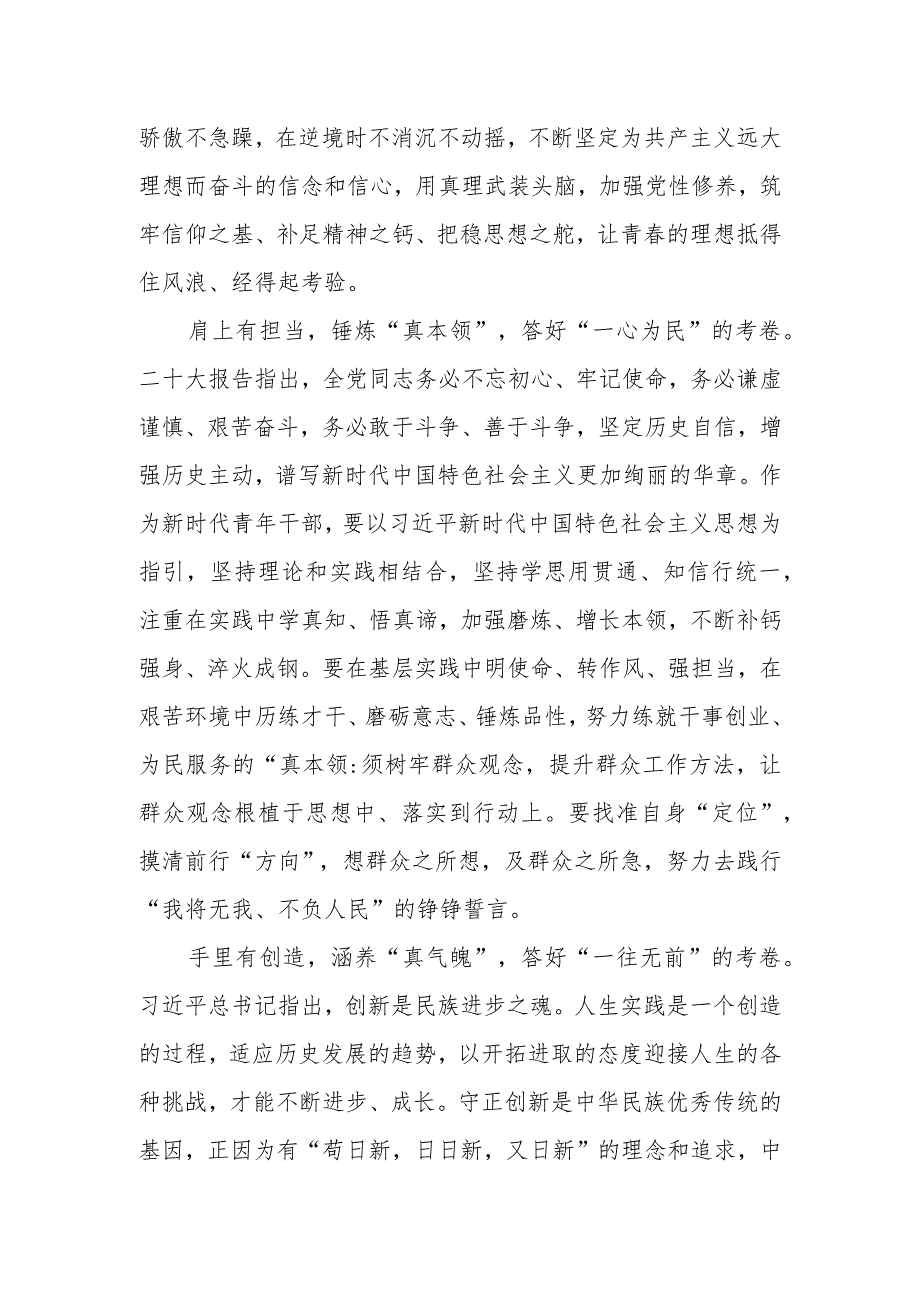 骄傲不急躁，在逆境时不消沉不动摇，不断坚定为共产主义远大
理想而奋斗的信念和信心，用真理武装头脑，加强党性修养，筑
牢信仰之基、补足精神之钙、把稳思想之舵，让青春的理想抵得
住风浪、经得起考验。
肩上有担当，锤炼“真本领”，答好“一心为民”的考卷。
二十大报告指出，全党同志务必不忘初心、牢记使命，务必谦虚
谨慎、艰苦奋斗，务必敢于斗争、善于斗争，坚定历史自信，增
强历史主动，谱写新时代中国特色社会主义更加绚丽的华章。作
为新时代青年干部，要以习近平新时代中国特色社会主义思想为
指引，坚持理论和实践相结合，坚持学思用贯通、知信行统一，
注重在实践中学真知、悟真谛，加强磨炼、增长本领，不断补钙
强身、淬火成钢。要在基层实践中明使命、转作风、强担当，在
艰苦环境中历练才干、磨砺意志、锤炼品性，努力练就干事创业、
为民服务的“真本领:须树牢群众观念，提升群众工作方法，让
群众观念根植于思想中、落实到行动上。要找准自身“定位”，
摸清前行“方向”，想群众之所想，及群众之所急，努力去践行
“我将无我、不负人民”的铮铮誓言。
手里有创造，涵养“真气魄”，答好“一往无前”的考卷。
习近平总书记指出，创新是民族进步之魂。人生实践是一个创造
的过程，适应历史发展的趋势，以开拓进取的态度迎接人生的各
种挑战，才能不断进步、成长。守正创新是中华民族优秀传统的
基因，正因为有“苟日新，日日新，又日新”的理念和追求，中